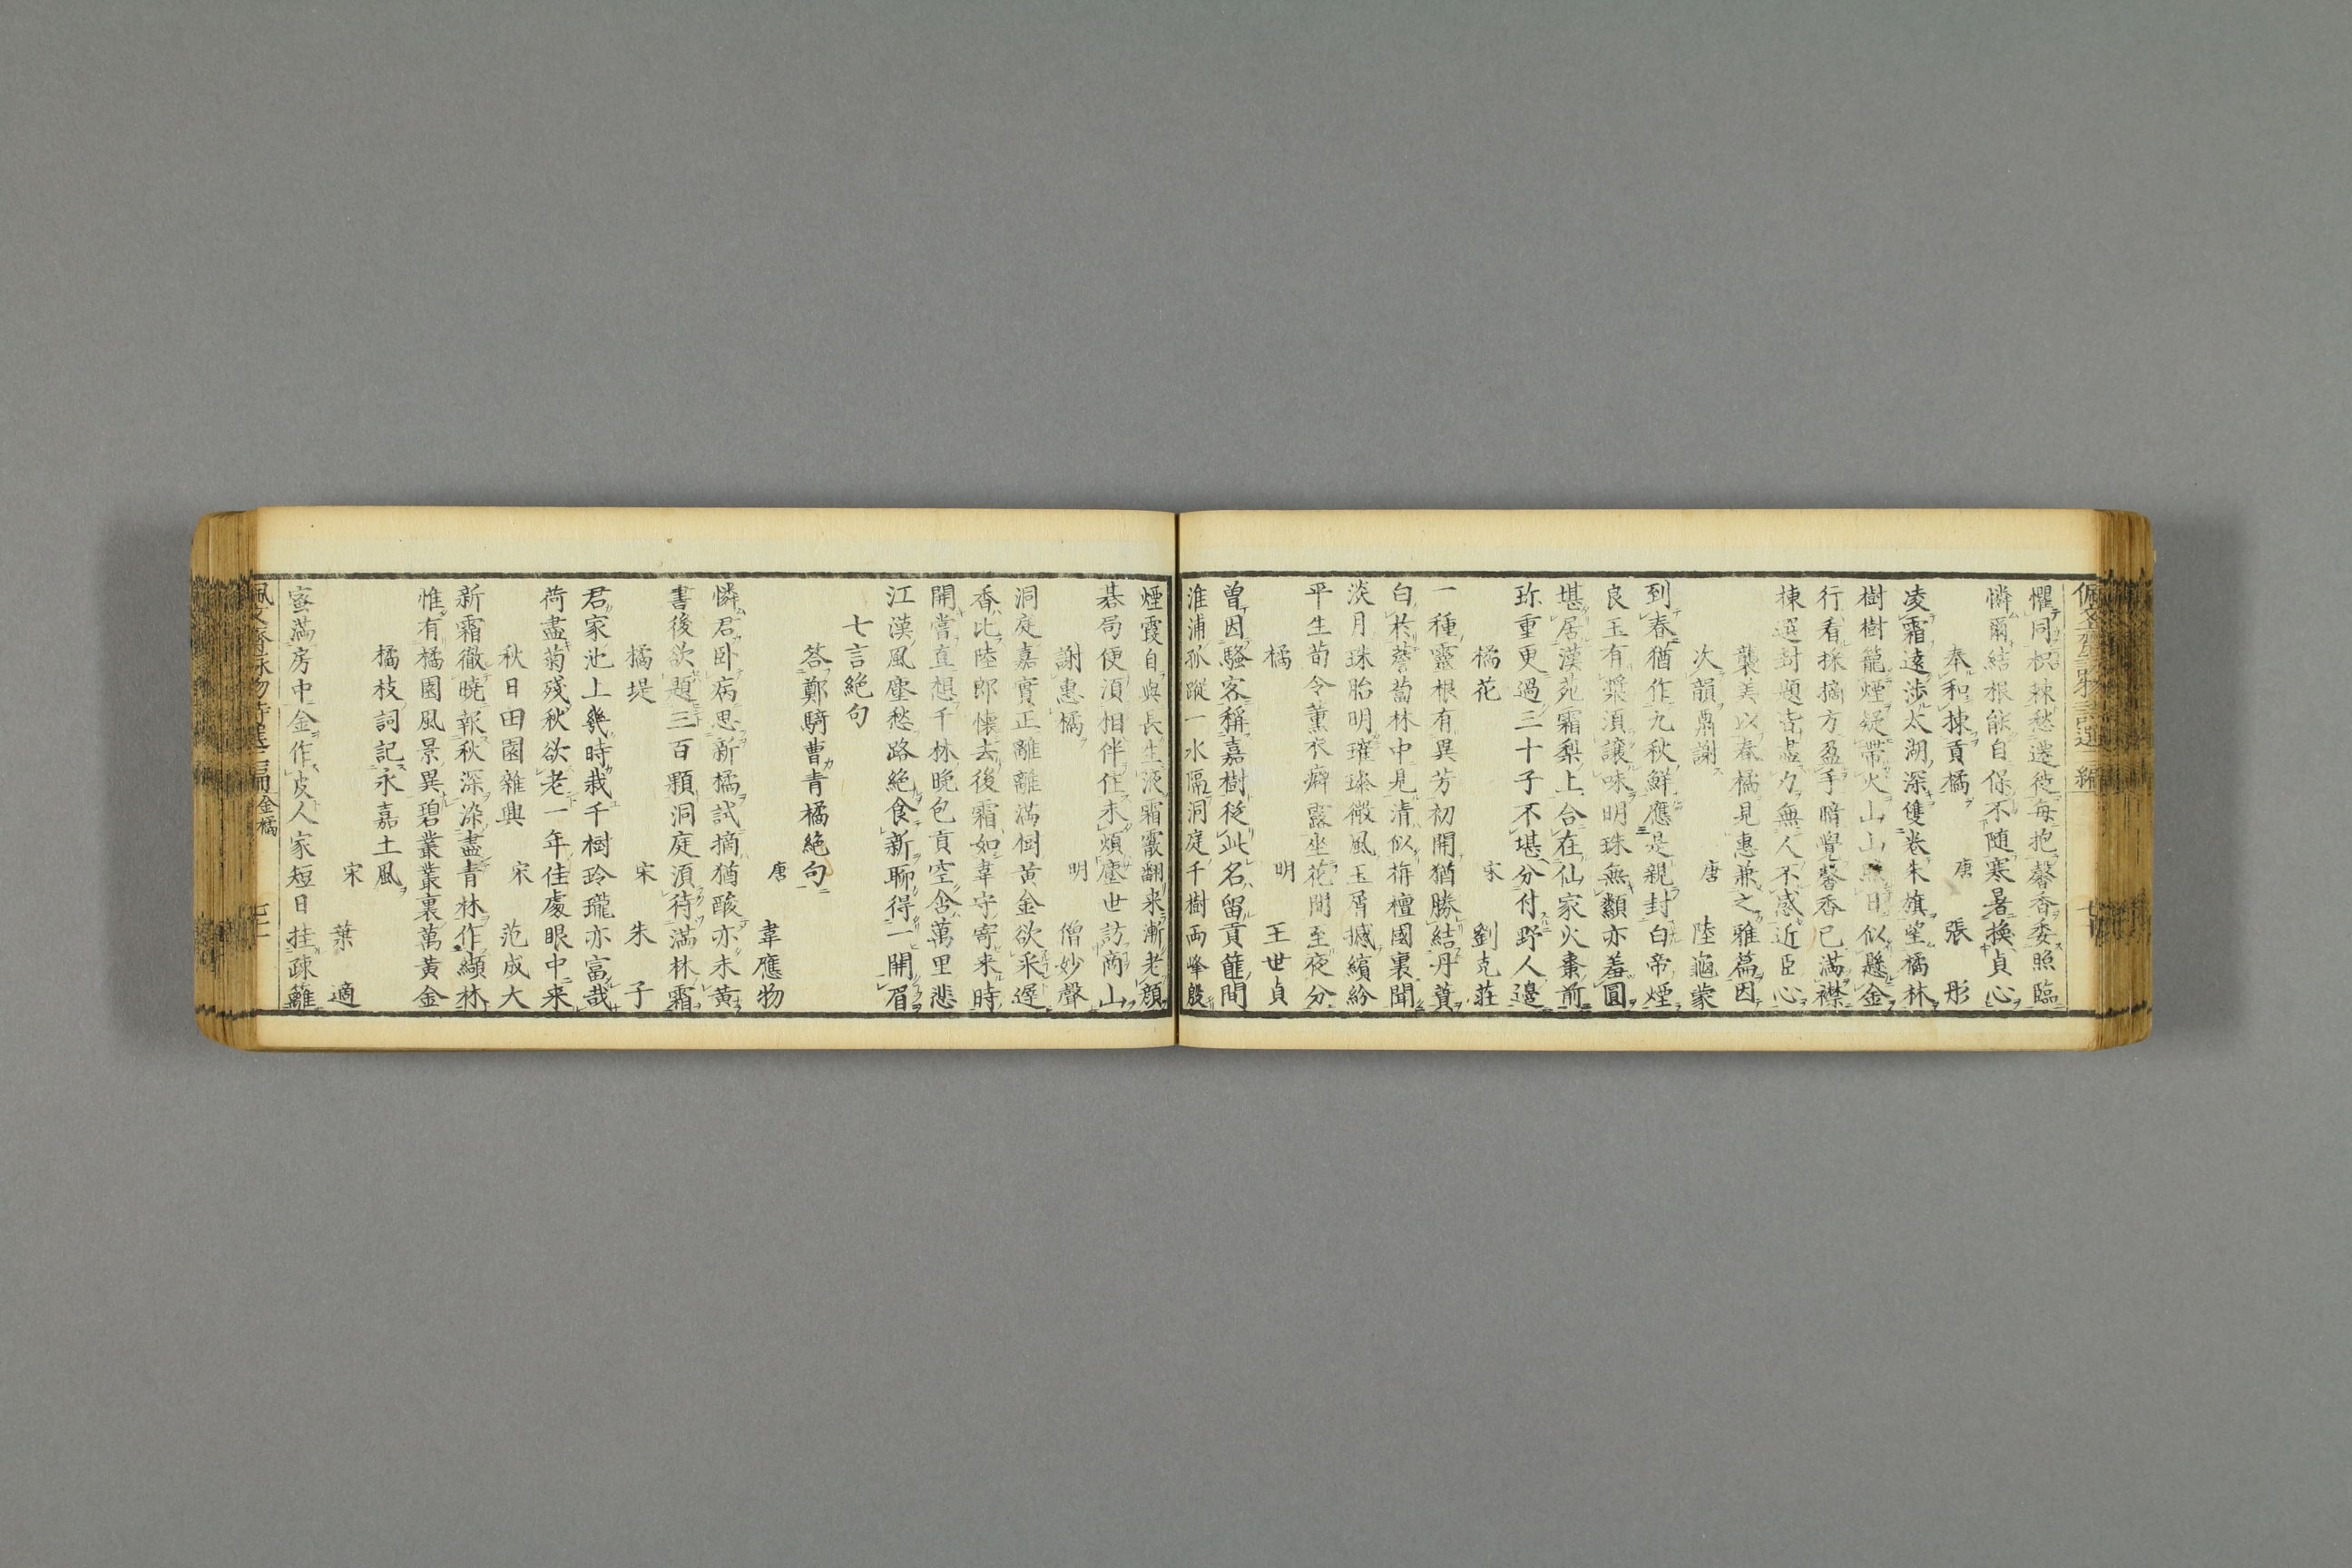 懼同枳棘愁遷徙每抱馨香委照臨
憐爾結根能自保不随寒暑換貞心
奉和揀貢橘 唐 張彤
凌霜遠渉太湖深雙卷朱旗望橘林
樹樹籠煙疑帶火山山照日似懸金
行看採摘方盈手暗覺馨香已滿襟
揀選封題皆盡力無人不感近臣心
襲美以春橘見惠兼之雅篇因
次韻酬謝 唐 陸龜蒙
到春猶作九秋鮮應是親封白帝煙
良玉有漿須讓味明珠無纇亦羞圓
堪居漢苑霜梨上合在仙家火棗前
珎重更過三十子不堪分付野人邊
橘花 宋 劉克莊
一種靈根有異芳初開猶勝結丹蕡
白於薝蔔林中見清似旃檀國裏聞
淡月珠胎明璀璨微風玉屑撼繽紛
平生荀令薫衣癖露坐花間至夜分
橘 明 王世貞
曾因騷客稱嘉樹從此名留貢篚間
淮浦孤蹤一水隔洞庭千樹両峰殷
煙霞自與長生液霜霰翻来漸老顔
碁局便須相伴住未煩塵世訪商山
謝惠橘 明 僧妙聲
洞庭嘉實正離離滿樹黄金欲采遲
香比陸郎懷去後霜如韋守寄来時
開嘗直想千林晩包貢空含萬里悲
江漢風塵愁路絶食新聊得一開眉
七言絶句
答鄭騎曹青橘絶句
唐 韋應物
憐君卧病思新橘試摘猶酸亦未黄
書後欲題三百顆洞庭須待滿林霜
橘堤 宋 朱子
君家池上幾時栽千樹玲瓏亦富哉
荷盡菊殘秋欲老一年佳處眼中来
秋日田園雜興 宋 范成大
新霜徹曉報秋深染盡青林作纈林
惟有橘園風景異碧叢叢裏萬黄金
橘枝詞記永嘉土風
宋 葉適
蜜滿房中金作皮人家短日挂疎籬
佩文齋詠物詩選 金橘